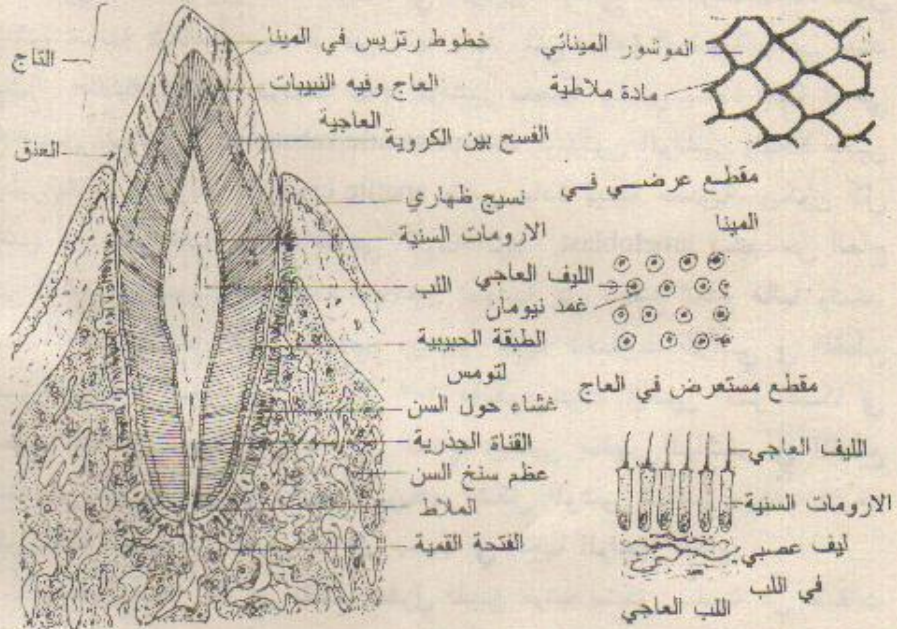 التاج
العنق
خطوط رتزيس في المينا
العاج وفيه النبيبات
العاجية
الفسح بين الكروية
نسيج ظهاري
الارومات السنية
اللب
الطبقة الحبيبية
لتومس
غشاء حول السن
القناة الجذرية
عظم سنخ السن
الملاط
الفتحة القمية
الموشور المينائي
مادة ملاطية
مقطع عرضي في
المينا
الليف العاجي
غمد نيومان
مقطع مستعرض في العاج
الليف العاجي
الارومات السنية
ليف عصبي
في اللب
اللب العاجي